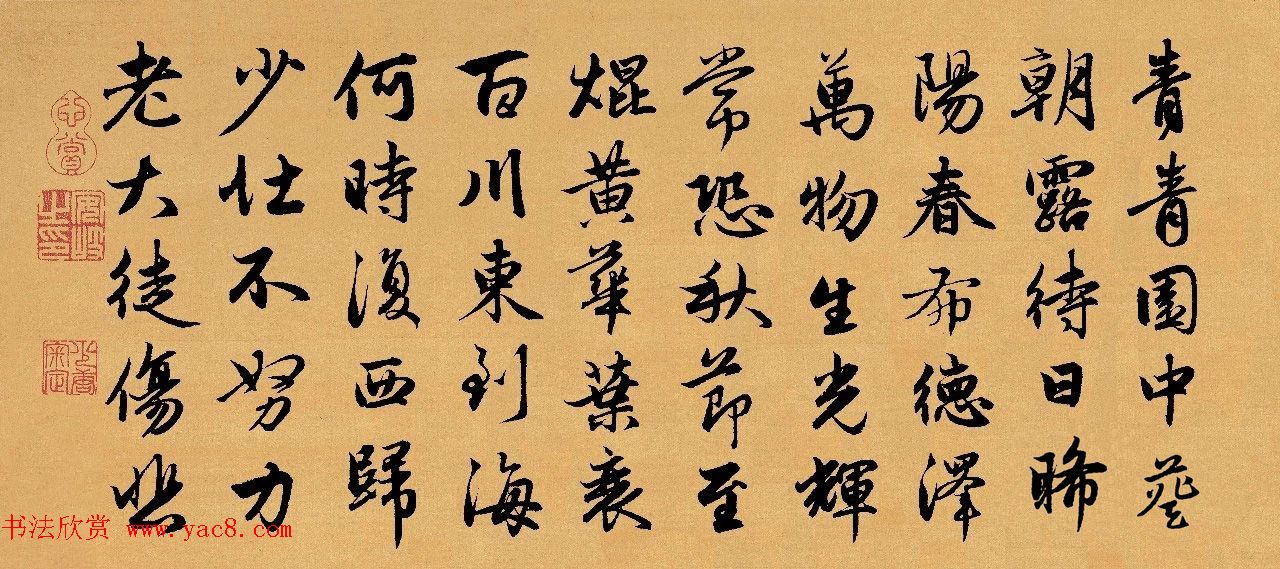 青青園中葵
朝露待日晞
陽春布德澤
萬物生光輝
常恐秋節至
焜黄華葉衰
百川東到海
何時復西歸
少壯不努力
老大徒傷悲
书法欣赏 www.yac8.com